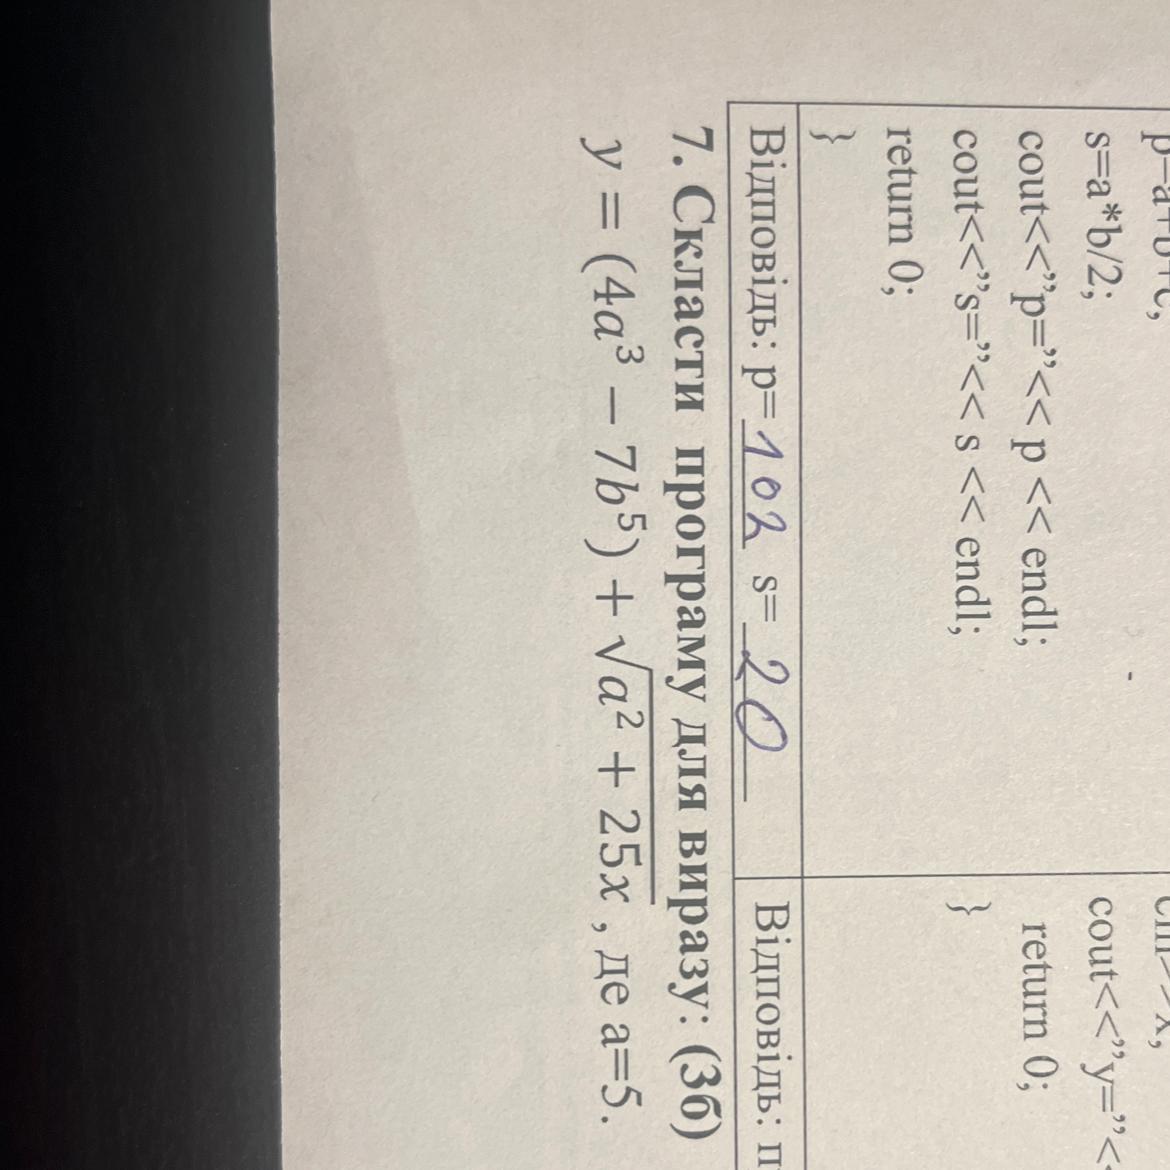 s=a*b/2;
cout<<”p=”<< p << endl;
cout<<”s=”<< s << endl;
return 0;
}
Відповідь: p= 102 s= 20
cout<<”y=”<
return 0;
}
Відповідь: п
7. Скласти програму для виразу: (3б)
y = (4a³ − 7b⁵) + √(a² + 25x) , де а=5.